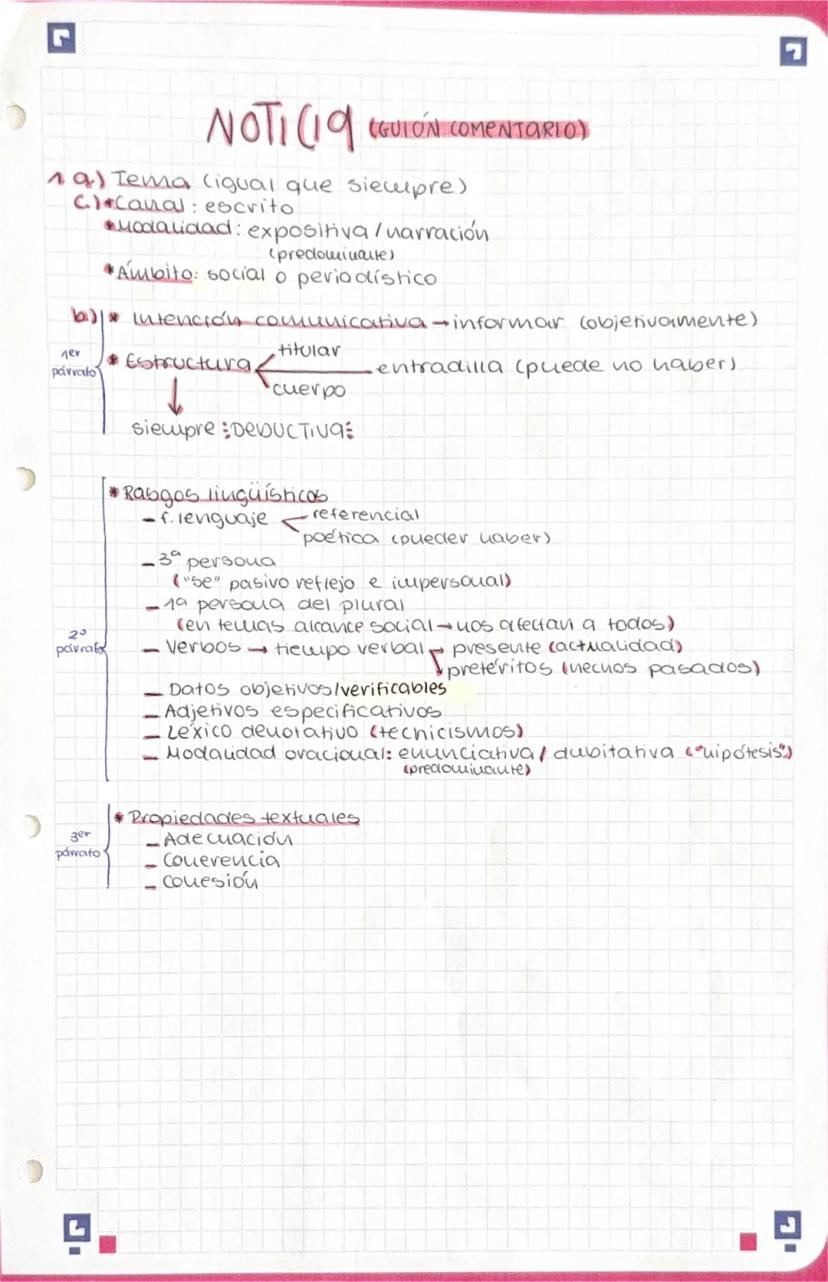 NOTICIA (GUIÓN COMENTARIO)
1 a) Tema (igual que siempre)
c) * Canal: escrito
* Modalidad: expositiva / narración
(predominante)
* Ámbito: social o periodístico
b) * Intención comunicativa → informar (objetivamente)
1er párrafo
* Estructura
titular
entradilla (puede no haber)
cuerpo
siempre DEDUCTIVA
2º párrafo
* Rasgos lingüísticos
- f. lenguaje
referencial
poética (pueder haber)
- 3ª persona
("se" pasivo reflejo e impersonal)
- 1ª persona del plural
(en temas alcance social → nos afectan a todos)
- Verbos → tiempo verbal
presente (actualidad)
pretéritos (hechos pasados)
- Datos objetivos/verificables
- Adjetivos especificativos
- Léxico denotativo (tecnicismos)
- Modalidad oracional: enunciativa / dubitativa ("hipótesis")
(predominante)
3er párrafo
* Propiedades textuales
- Adecuación
- Coherencia
- Cohesión